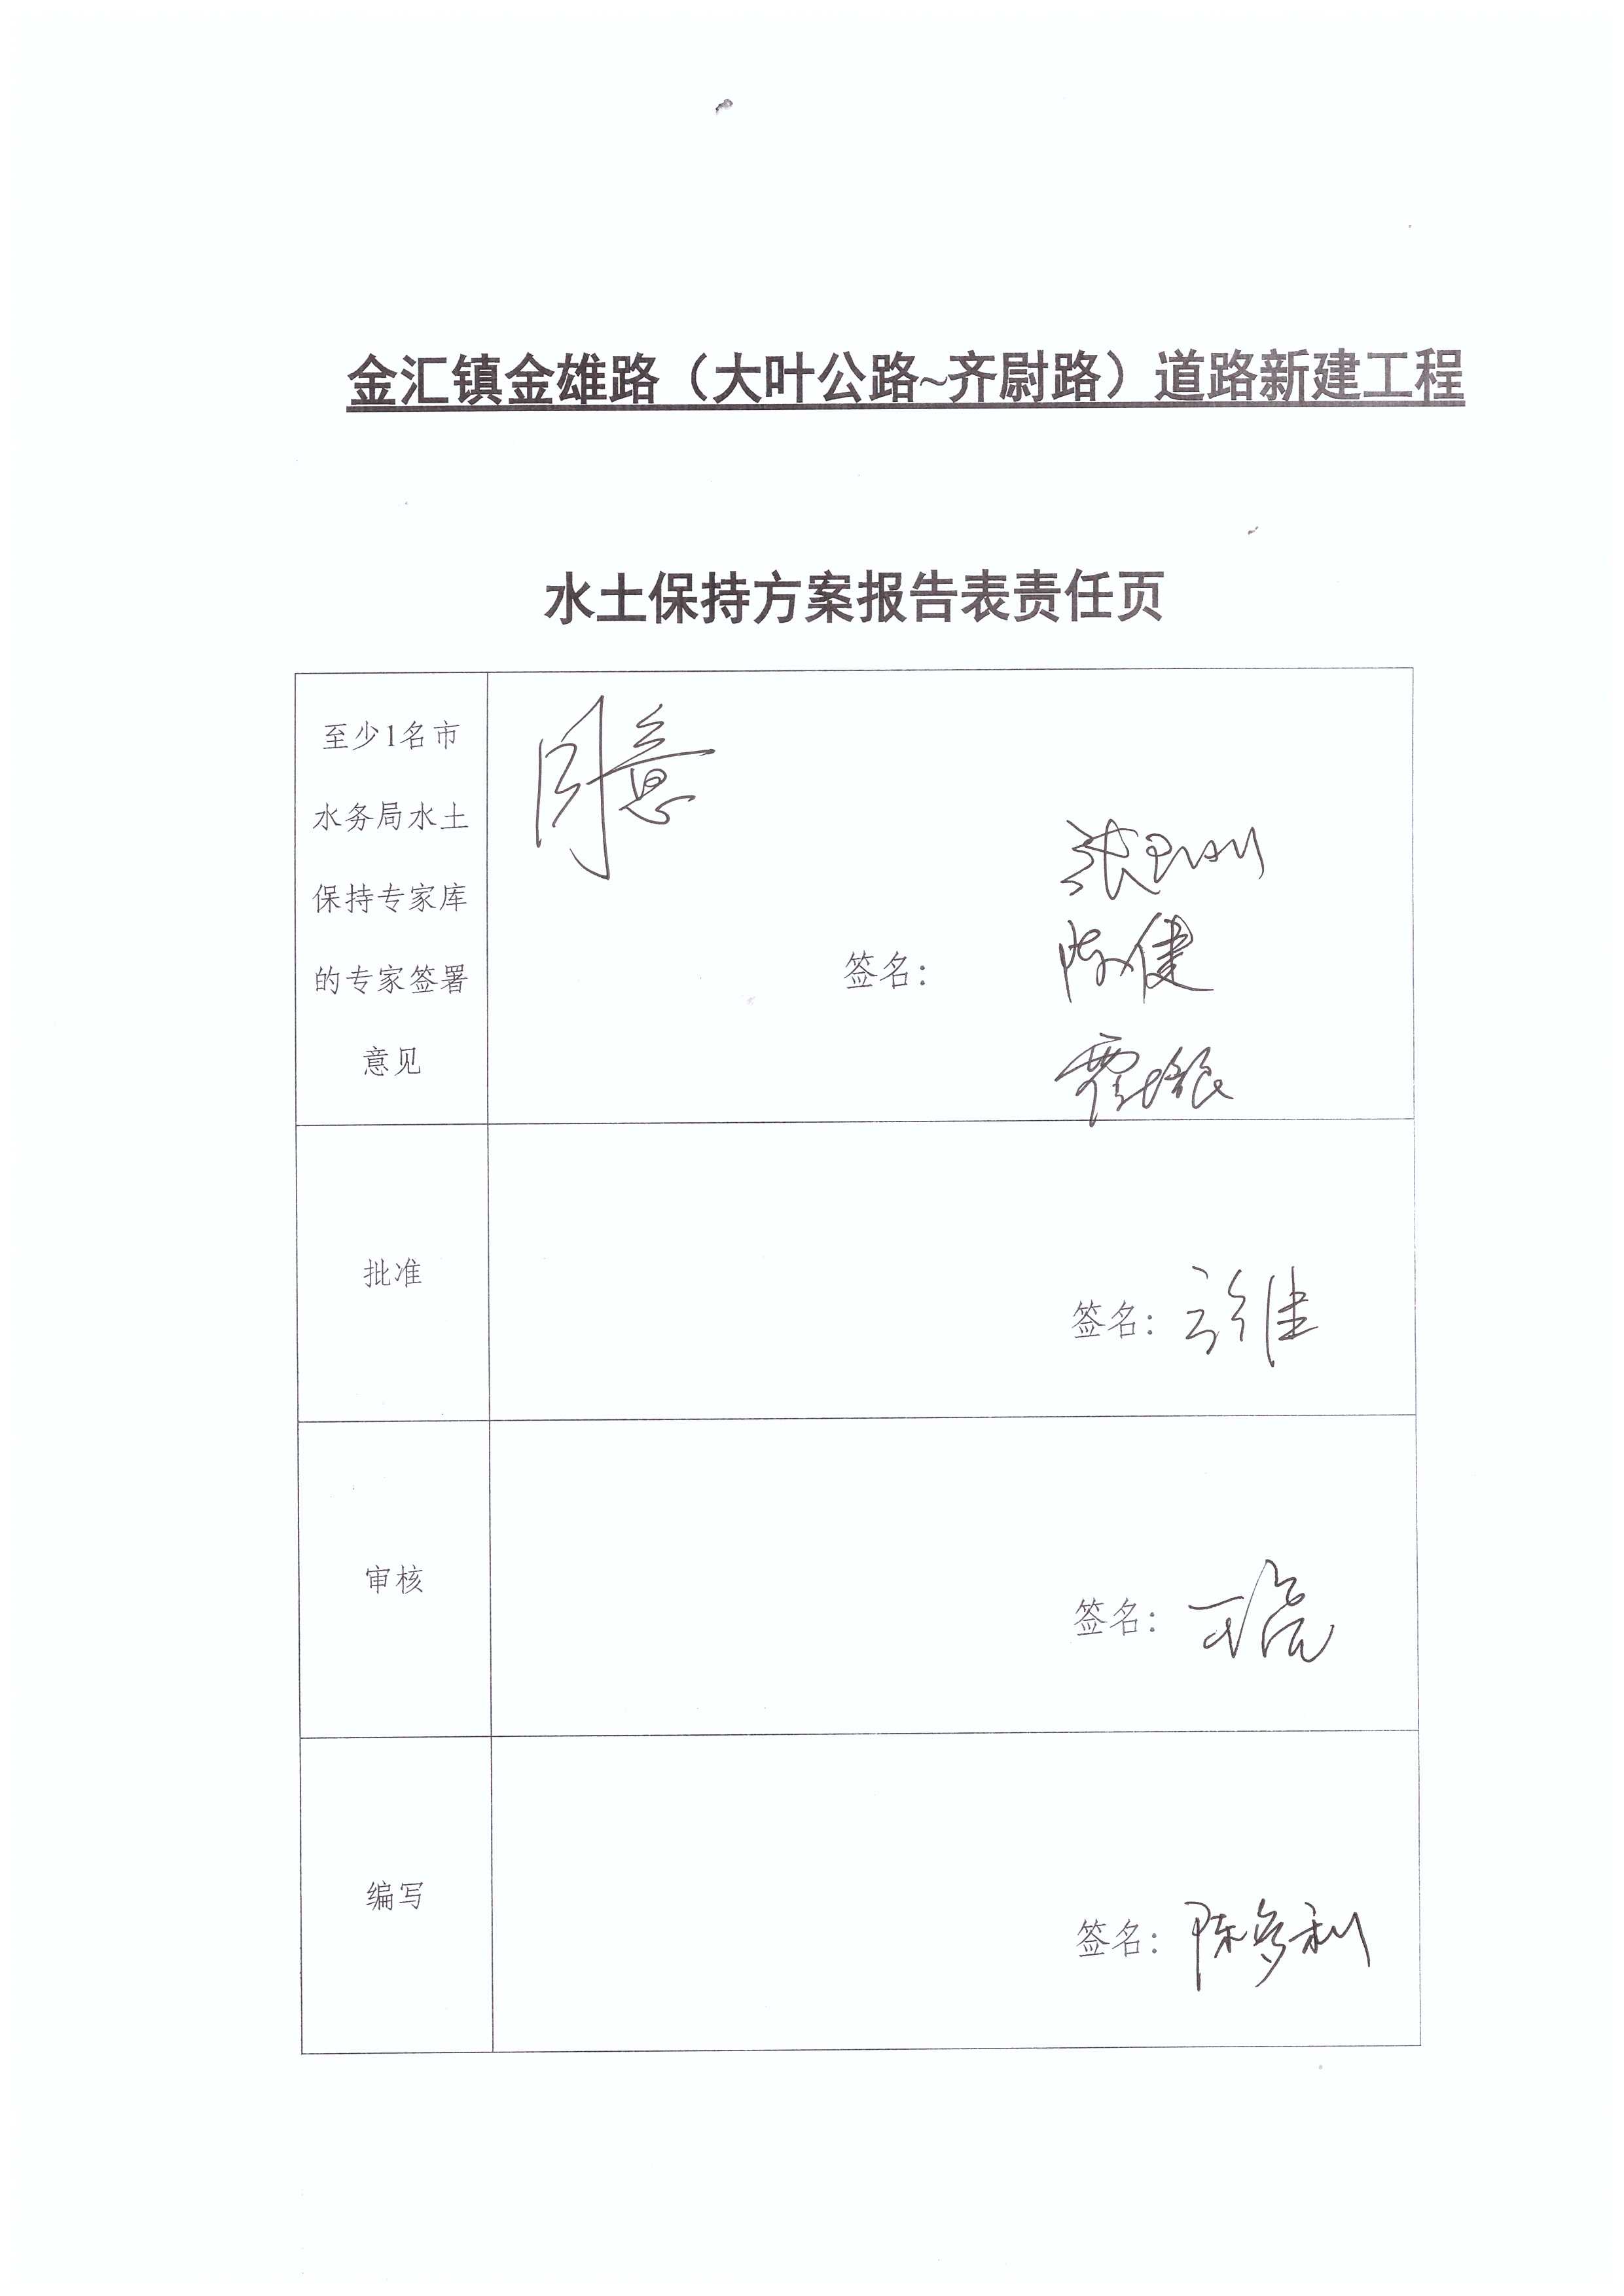 金汇镇金雄路（大叶公路~齐尉路）道路新建工程
水土保持方案报告表责任页
至少1名市
水务局水土
保持专家库
的专家签署
意见
同意
签名：
陈健
批准
签名：
审核
签名：
编写
签名：陈多利